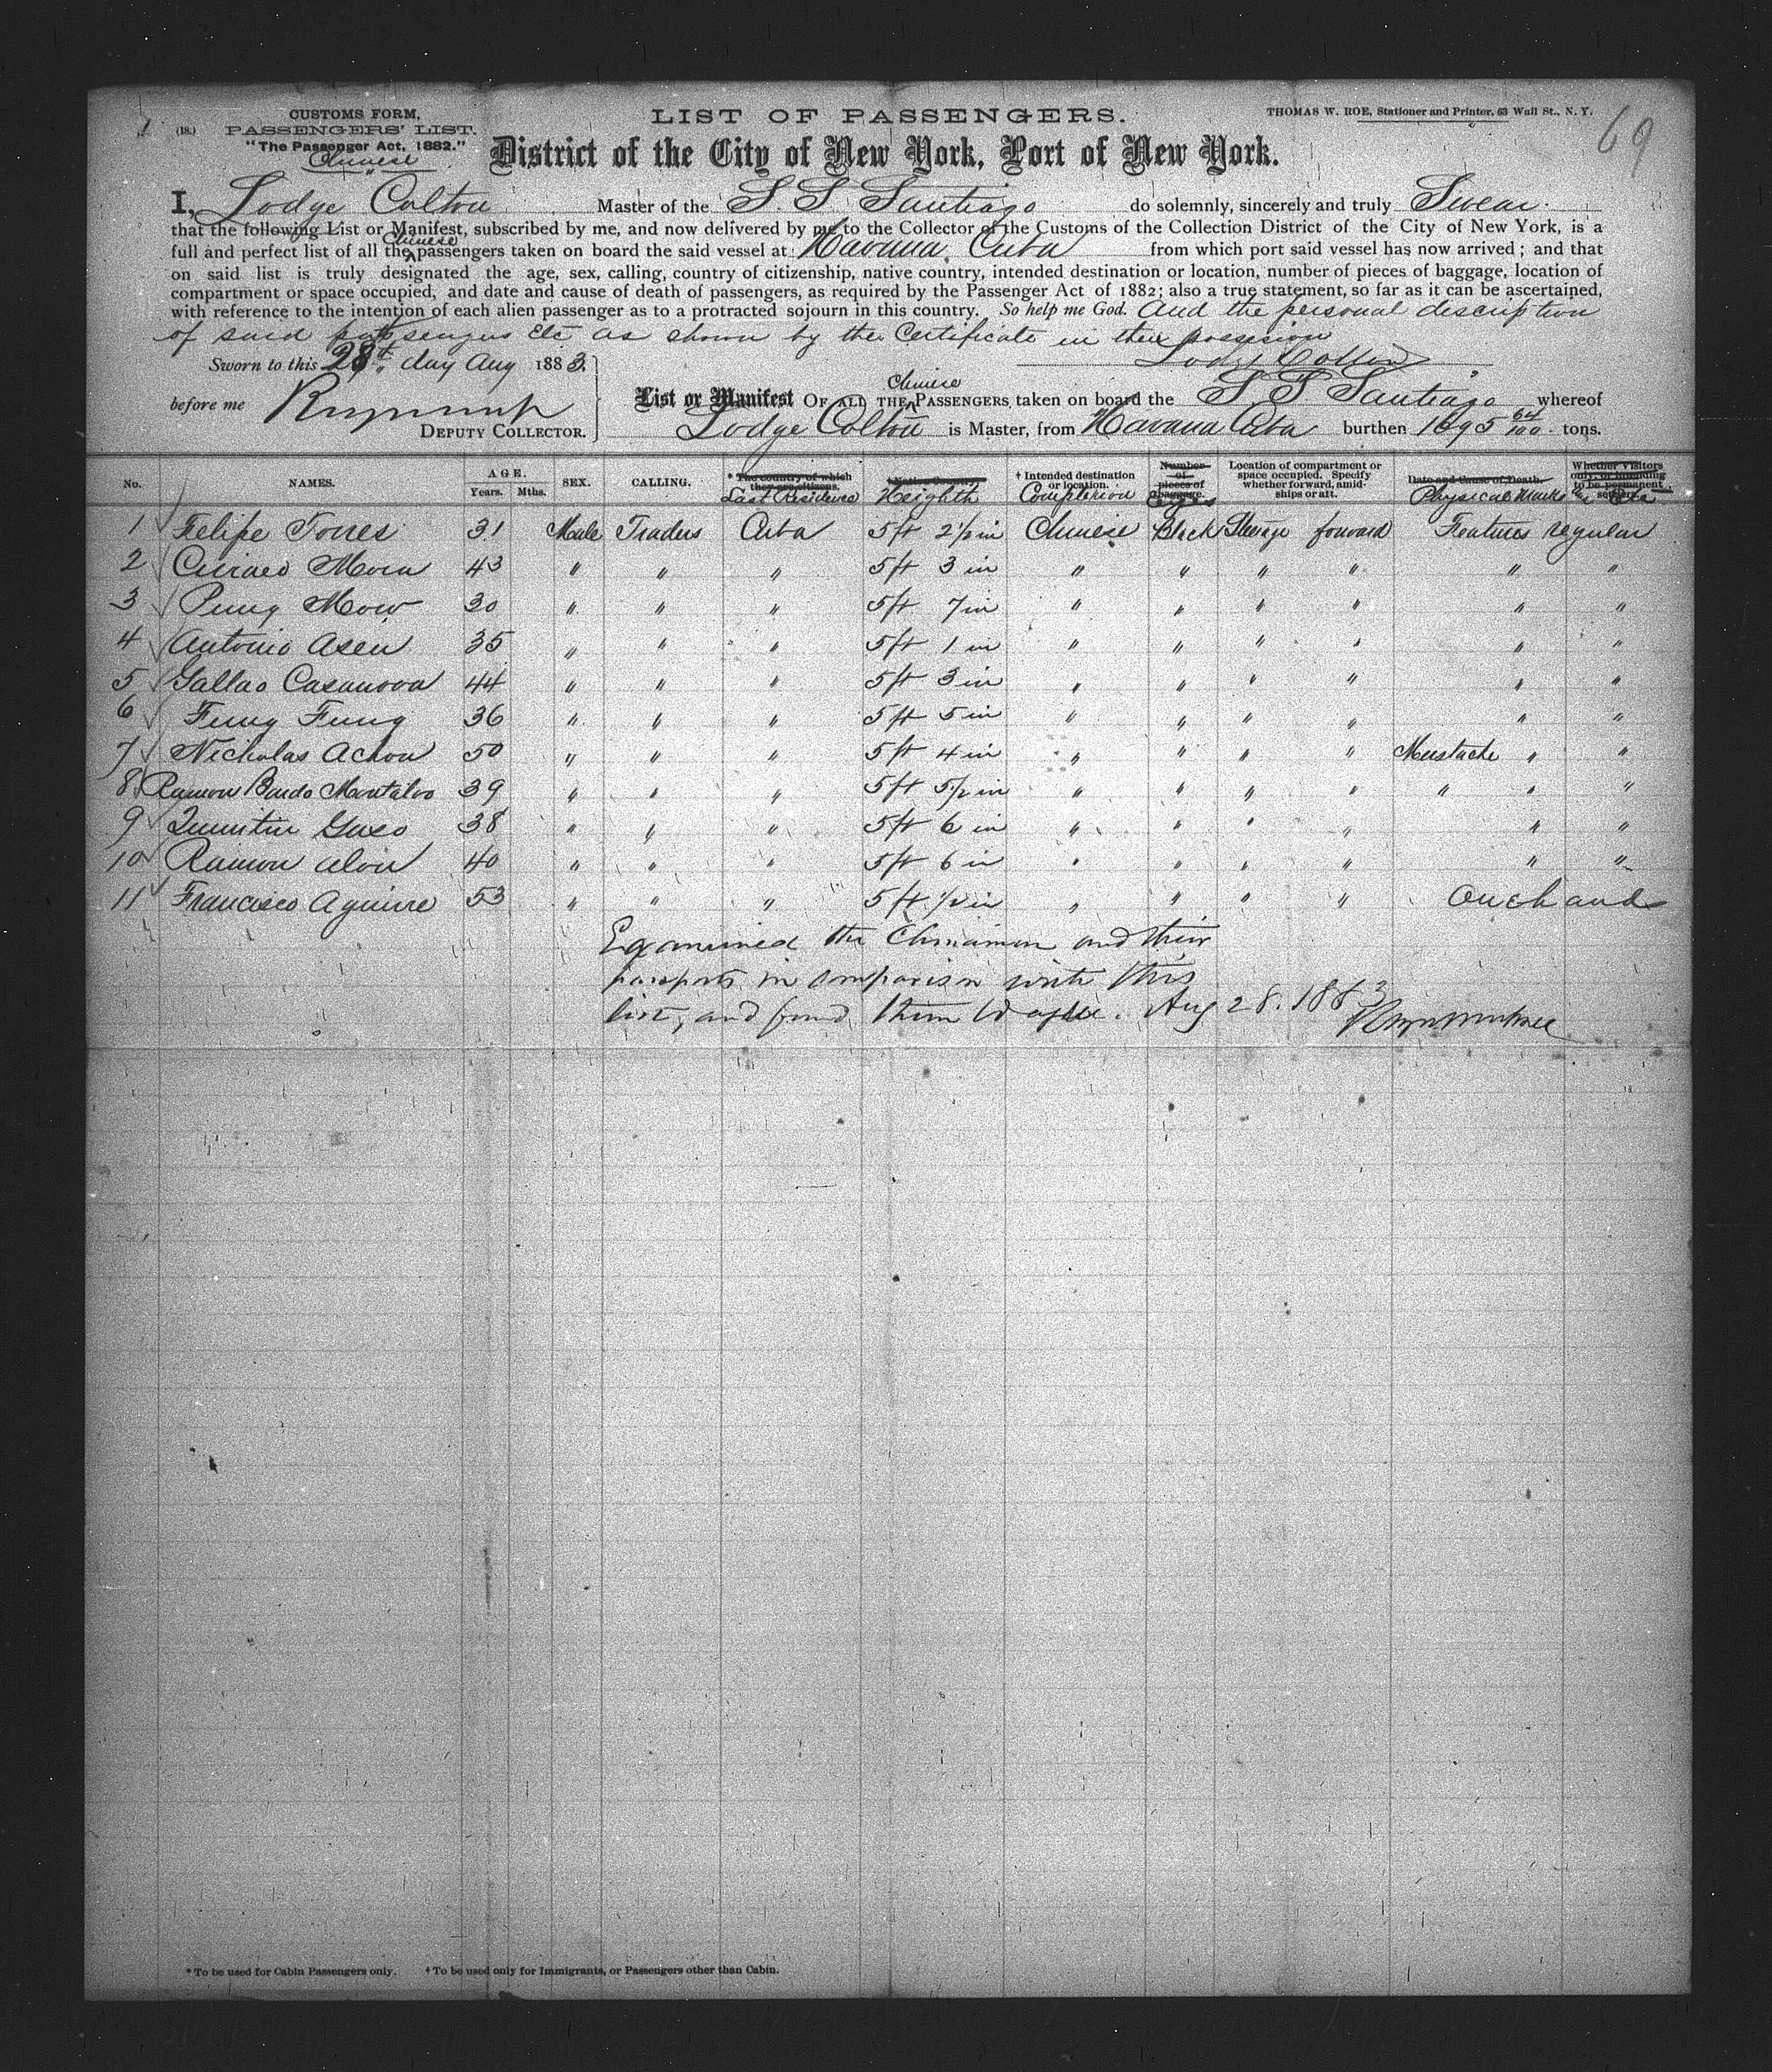 69
CUSTOMS FORM,
(18.) PASSENGERS' LIST.
"The Passenger Act, 1882."
Chinese
LIST OF PASSENGERS.
THOMAS W. ROE, Stationer and Printer, 63 Wall St., N. Y.
District of the City of New York, Port of New York.
I, Lodge Colton Master of the S. S. Santiago do solemnly, sincerely and truly Swear
that the following List or Manifest, subscribed by me, and now delivered by me to the Collector of the Customs of the Collection District of the City of New York, is a
full and perfect list of all the Chinese passengers taken on board the said vessel at Havana, Cuba from which port said vessel has now arrived; and that
on said list is truly designated the age, sex, calling, country of citizenship, native country, intended destination or location, number of pieces of baggage, location of
compartment or space occupied, and date and cause of death of passengers, as required by the Passenger Act of 1882; also a true statement, so far as it can be ascertained,
with reference to the intention of each alien passenger as to a protracted sojourn in this country. So help me God. And the personal description
of said passengers Etc as shown by the Certificate in their possession
Lodge Colton
Sworn to this 28th day Aug 1883.
before me
DEPUTY COLLECTOR.
List or Manifest OF ALL THE Chinese PASSENGERS taken on board the S. S. Santiago whereof
Lodge Colton is Master, from Havana Cuba burthen 1695 64/100 tons.
No. NAMES. AGE. Years. Mths. SEX. CALLING. * The country of which they are citizens. Last Residence Native Country. Heighth † Intended destination or location. Complexion Number of pieces of baggage. Eyes Location of compartment or space occupied. Specify whether forward, amidships or aft. Date and Cause of Death. Physical Marks Whether Visitors only, or intending to be permanent settlers.
1 Felipe Torres 31 Male Traders Cuba 5 ft 2 1/2 in Chinese Black Steerage forward Features regular
2 Mora 43 " " " 5 ft 3 in " " " " " "
3 Pung Mow 30 " " " 5 ft 7 in " " " " " "
4 Antonio Asen 35 " " " 5 ft 1 in " " " " " "
5 Gallao Casanova 44 " " " 5 ft 3 in " " " " " "
6 Fung Fung 36 " " " 5 ft 5 in " " " " " "
7 Nicholas Achon 50 " " " 5 ft 4 in " " " " Mustache " "
8 Ramon Montalvo 39 " " " 5 ft 5 1/2 in " " " " " " "
9 Quintin 38 " " " 5 ft 6 in " " " " " "
10 Ramon Alon 40 " " " 5 ft 6 in " " " " " "
11 Francisco Aguirre 53 " " " 5 ft 1/2 in " " " "
Examined the Chinamen and their
passports in comparison with this
list, and found them to agree. Aug 28. 1883
* To be used for Cabin Passengers only. † To be used only for Immigrants, or Passengers other than Cabin.